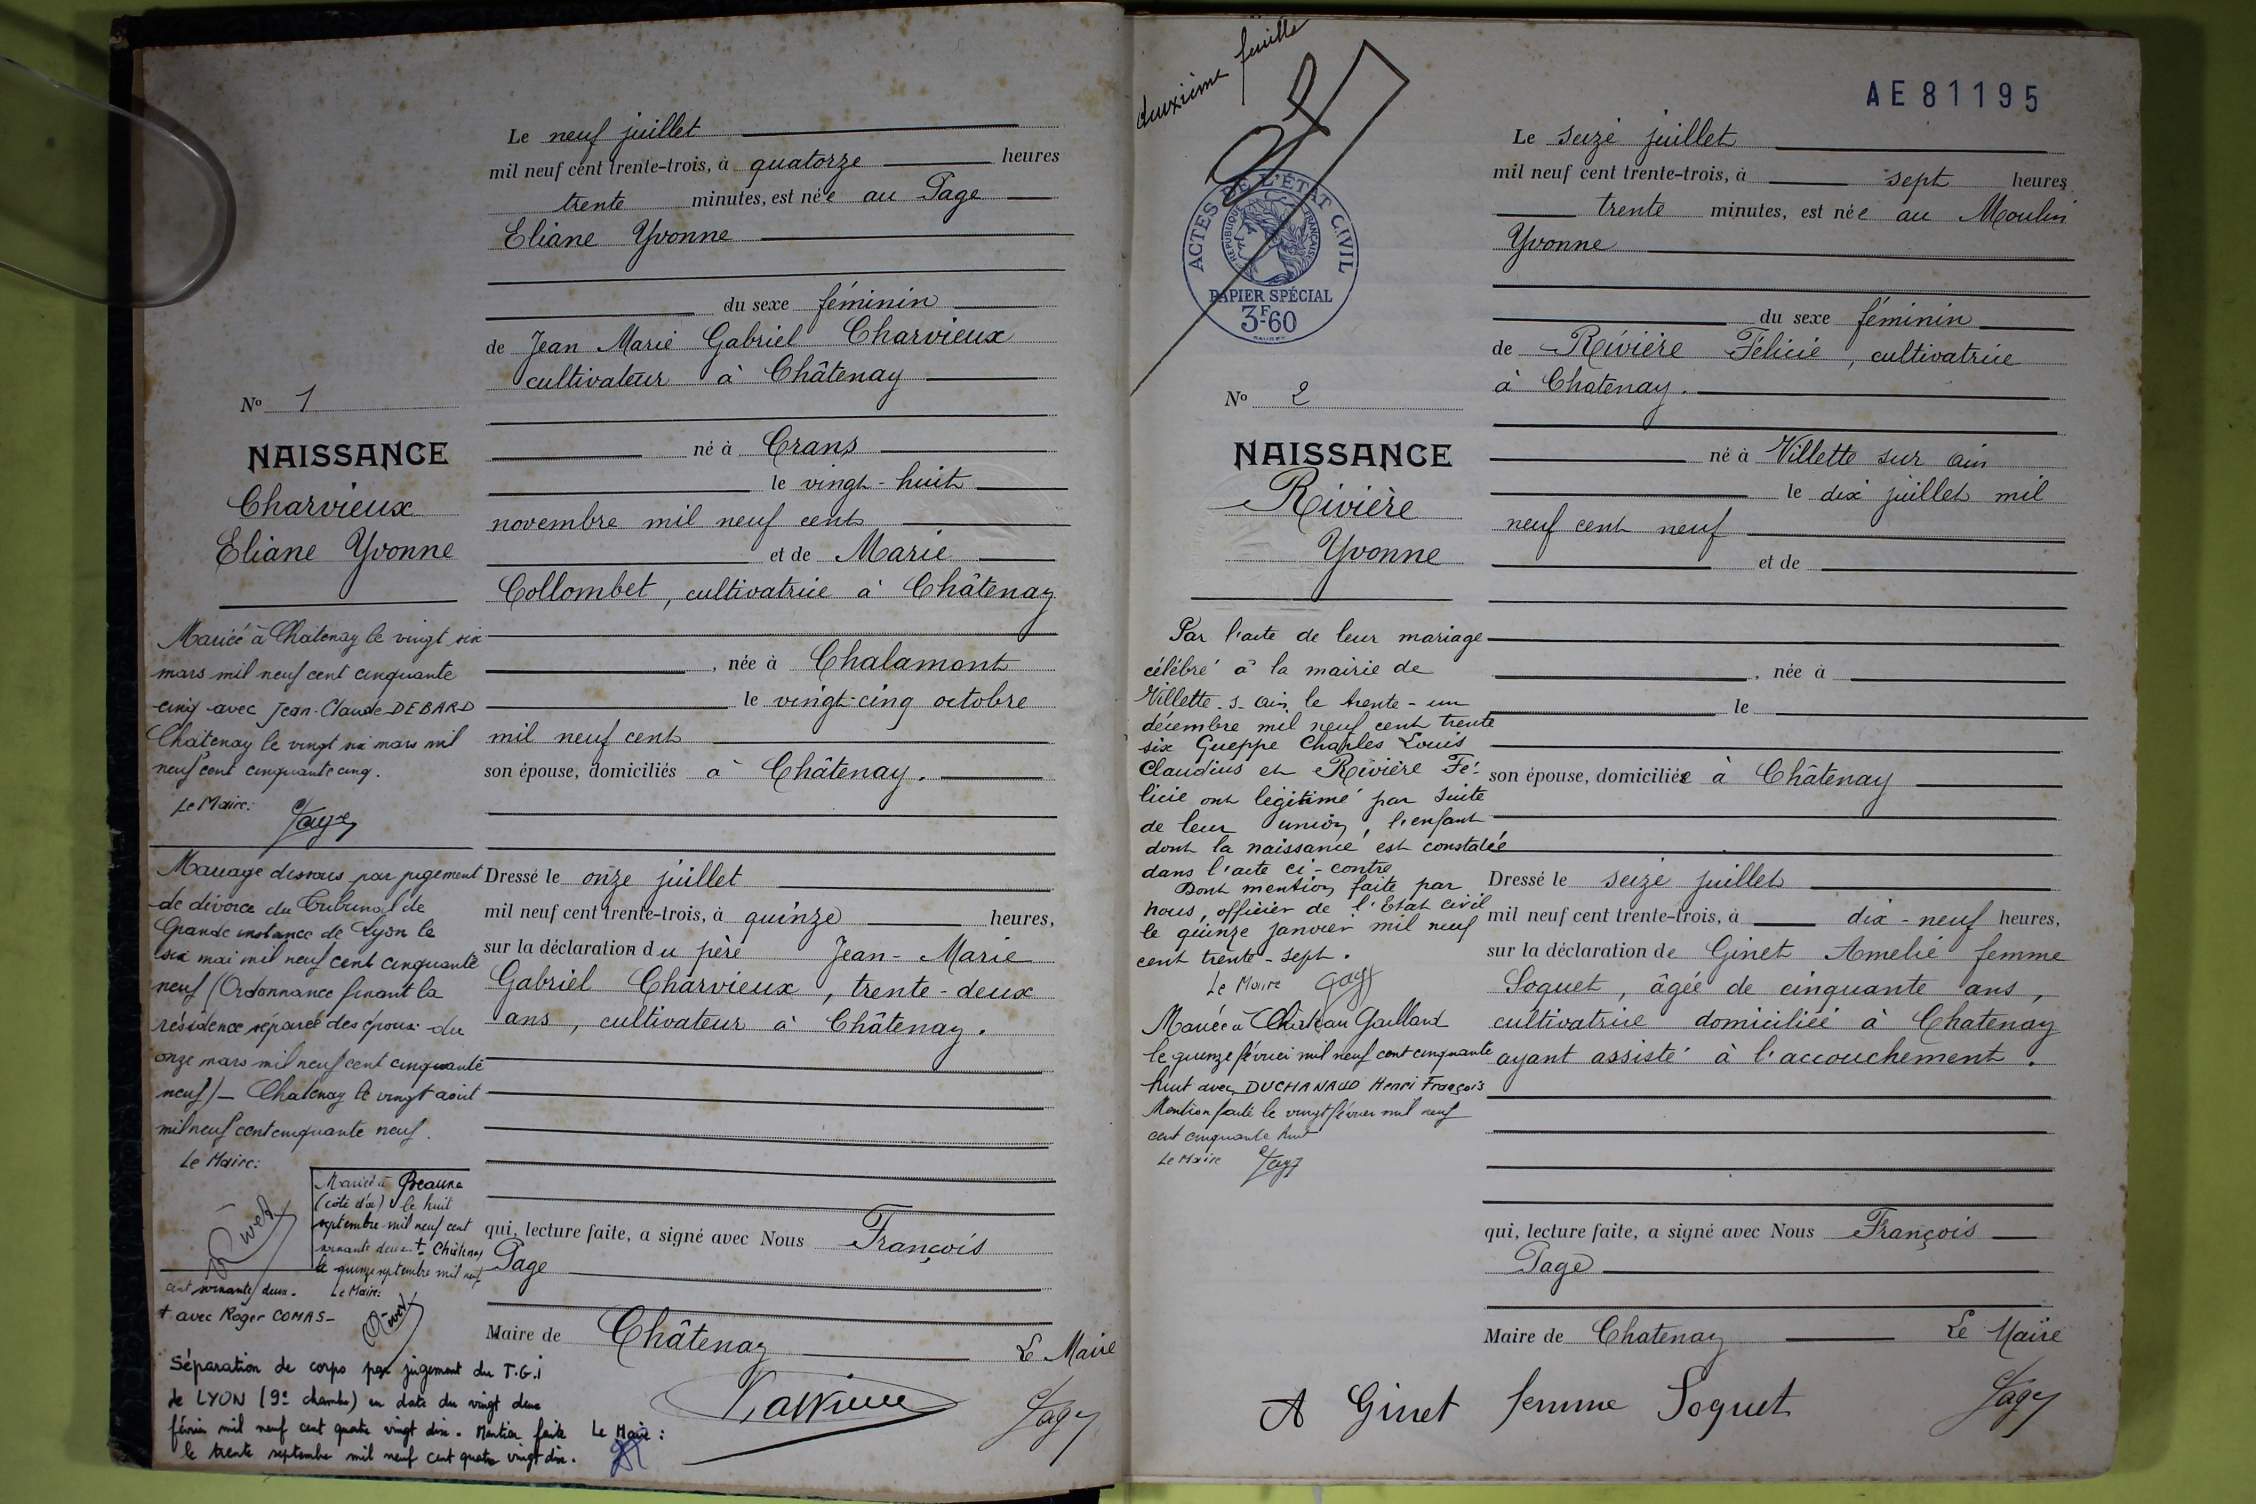 Le neuf juillet
mil neuf cent trente-trois, à quatorze heures
trente minutes, est née au Page
Eliane Yvonne
du sexe féminin
de Jean Marie Gabriel Charvieux
cultivateur à Châtenay
né à Crans
le vingt-huit
novembre mil neuf cent
et de Marie
Collombet, cultivatrice à Châtenay
, née à Chalamont
le vingt-cinq octobre
mil neuf cent
son épouse, domiciliés à Châtenay.
Dressé le onze juillet
mil neuf cent trente-trois, à quinze heures,
sur la déclaration du père Jean-Marie
Gabriel Charvieux, trente-deux
ans, cultivateur à Châtenay.
qui, lecture faite, a signé avec Nous François
Page
Maire de Châtenay Le Maire
Page
No 1
NAISSANCE
Charvieux
Eliane Yvonne
Mariée à Chatenay le vingt six
mars mil neuf cent cinquante
cinq avec Jean-Claude DEBARD
Chatenay le vingt six mars mil
neuf cent cinquante cinq.
Le Maire:
Page
Mariage dissous par jugement
de divorce du Tribunal de
Grande instance de Lyon le
six mai mil neuf cent cinquante
neuf (Ordonnance fixant la
résidence séparée des époux du
onze mars mil neuf cent cinquante
neuf) — Chatenay le vingt août
mil neuf cent cinquante neuf.
Le Maire:
Mariée à Beaune
(côte d'or) le huit
septembre mil neuf cent
soixante deux + Châtenay
le quinze septembre mil neuf
cent soixante deux. Le Maire:
+ avec Roger COMAS —
Séparation de corps par jugement du T.G.i
de LYON (9e chambre) en date du vingt deux
février mil neuf cent quatre vingt dix. Mention faite Le Maire:
le trente septembre mil neuf cent quatre vingt dix.
deuxième feuille
AE81195
ACTES DE L'ÉTAT CIVIL
RÉPUBLIQUE FRANÇAISE
PAPIER SPÉCIAL
3F60
Le seize juillet
mil neuf cent trente-trois, à sept heures
trente minutes, est née au Moulin
Yvonne
du sexe féminin
de Rivière Félicie, cultivatrice
à Chatenay.
né à Villette sur ain
le dix juillet mil
neuf cent neuf
et de
, née à
le
son épouse, domiciliée à Châtenay
Dressé le seize juillet
mil neuf cent trente-trois, à dix-neuf heures,
sur la déclaration de Ginet Amelie femme
Soquet, âgée de cinquante ans,
cultivatrice domiciliée à Chatenay
ayant assisté à l'accouchement.
qui, lecture faite, a signé avec Nous François
Page
Maire de Chatenay Le Maire
A Ginet femme Soquet Page
No 2
NAISSANCE
Rivière
Yvonne
Par l'acte de leur mariage
célébré à la mairie de
Villette-s-ain, le trente-un
décembre mil neuf cent trente
six Gueppe Charles Louis
Claudius et Rivière Fé-
licie ont légitimé par suite
de leur union, l'enfant
dont la naissance est constatée
dans l'acte ci-contre
Dont mention faite par
nous, officier de l'Etat civil
le quinze janvier mil neuf
cent trente-sept.
Le Maire Page
Mariée à Château Gaillard
le quinze février mil neuf cent cinquante
huit avec DUCHANAUD Henri François
Mention faite le vingt février mil neuf
cent cinquante huit
Le Maire Page